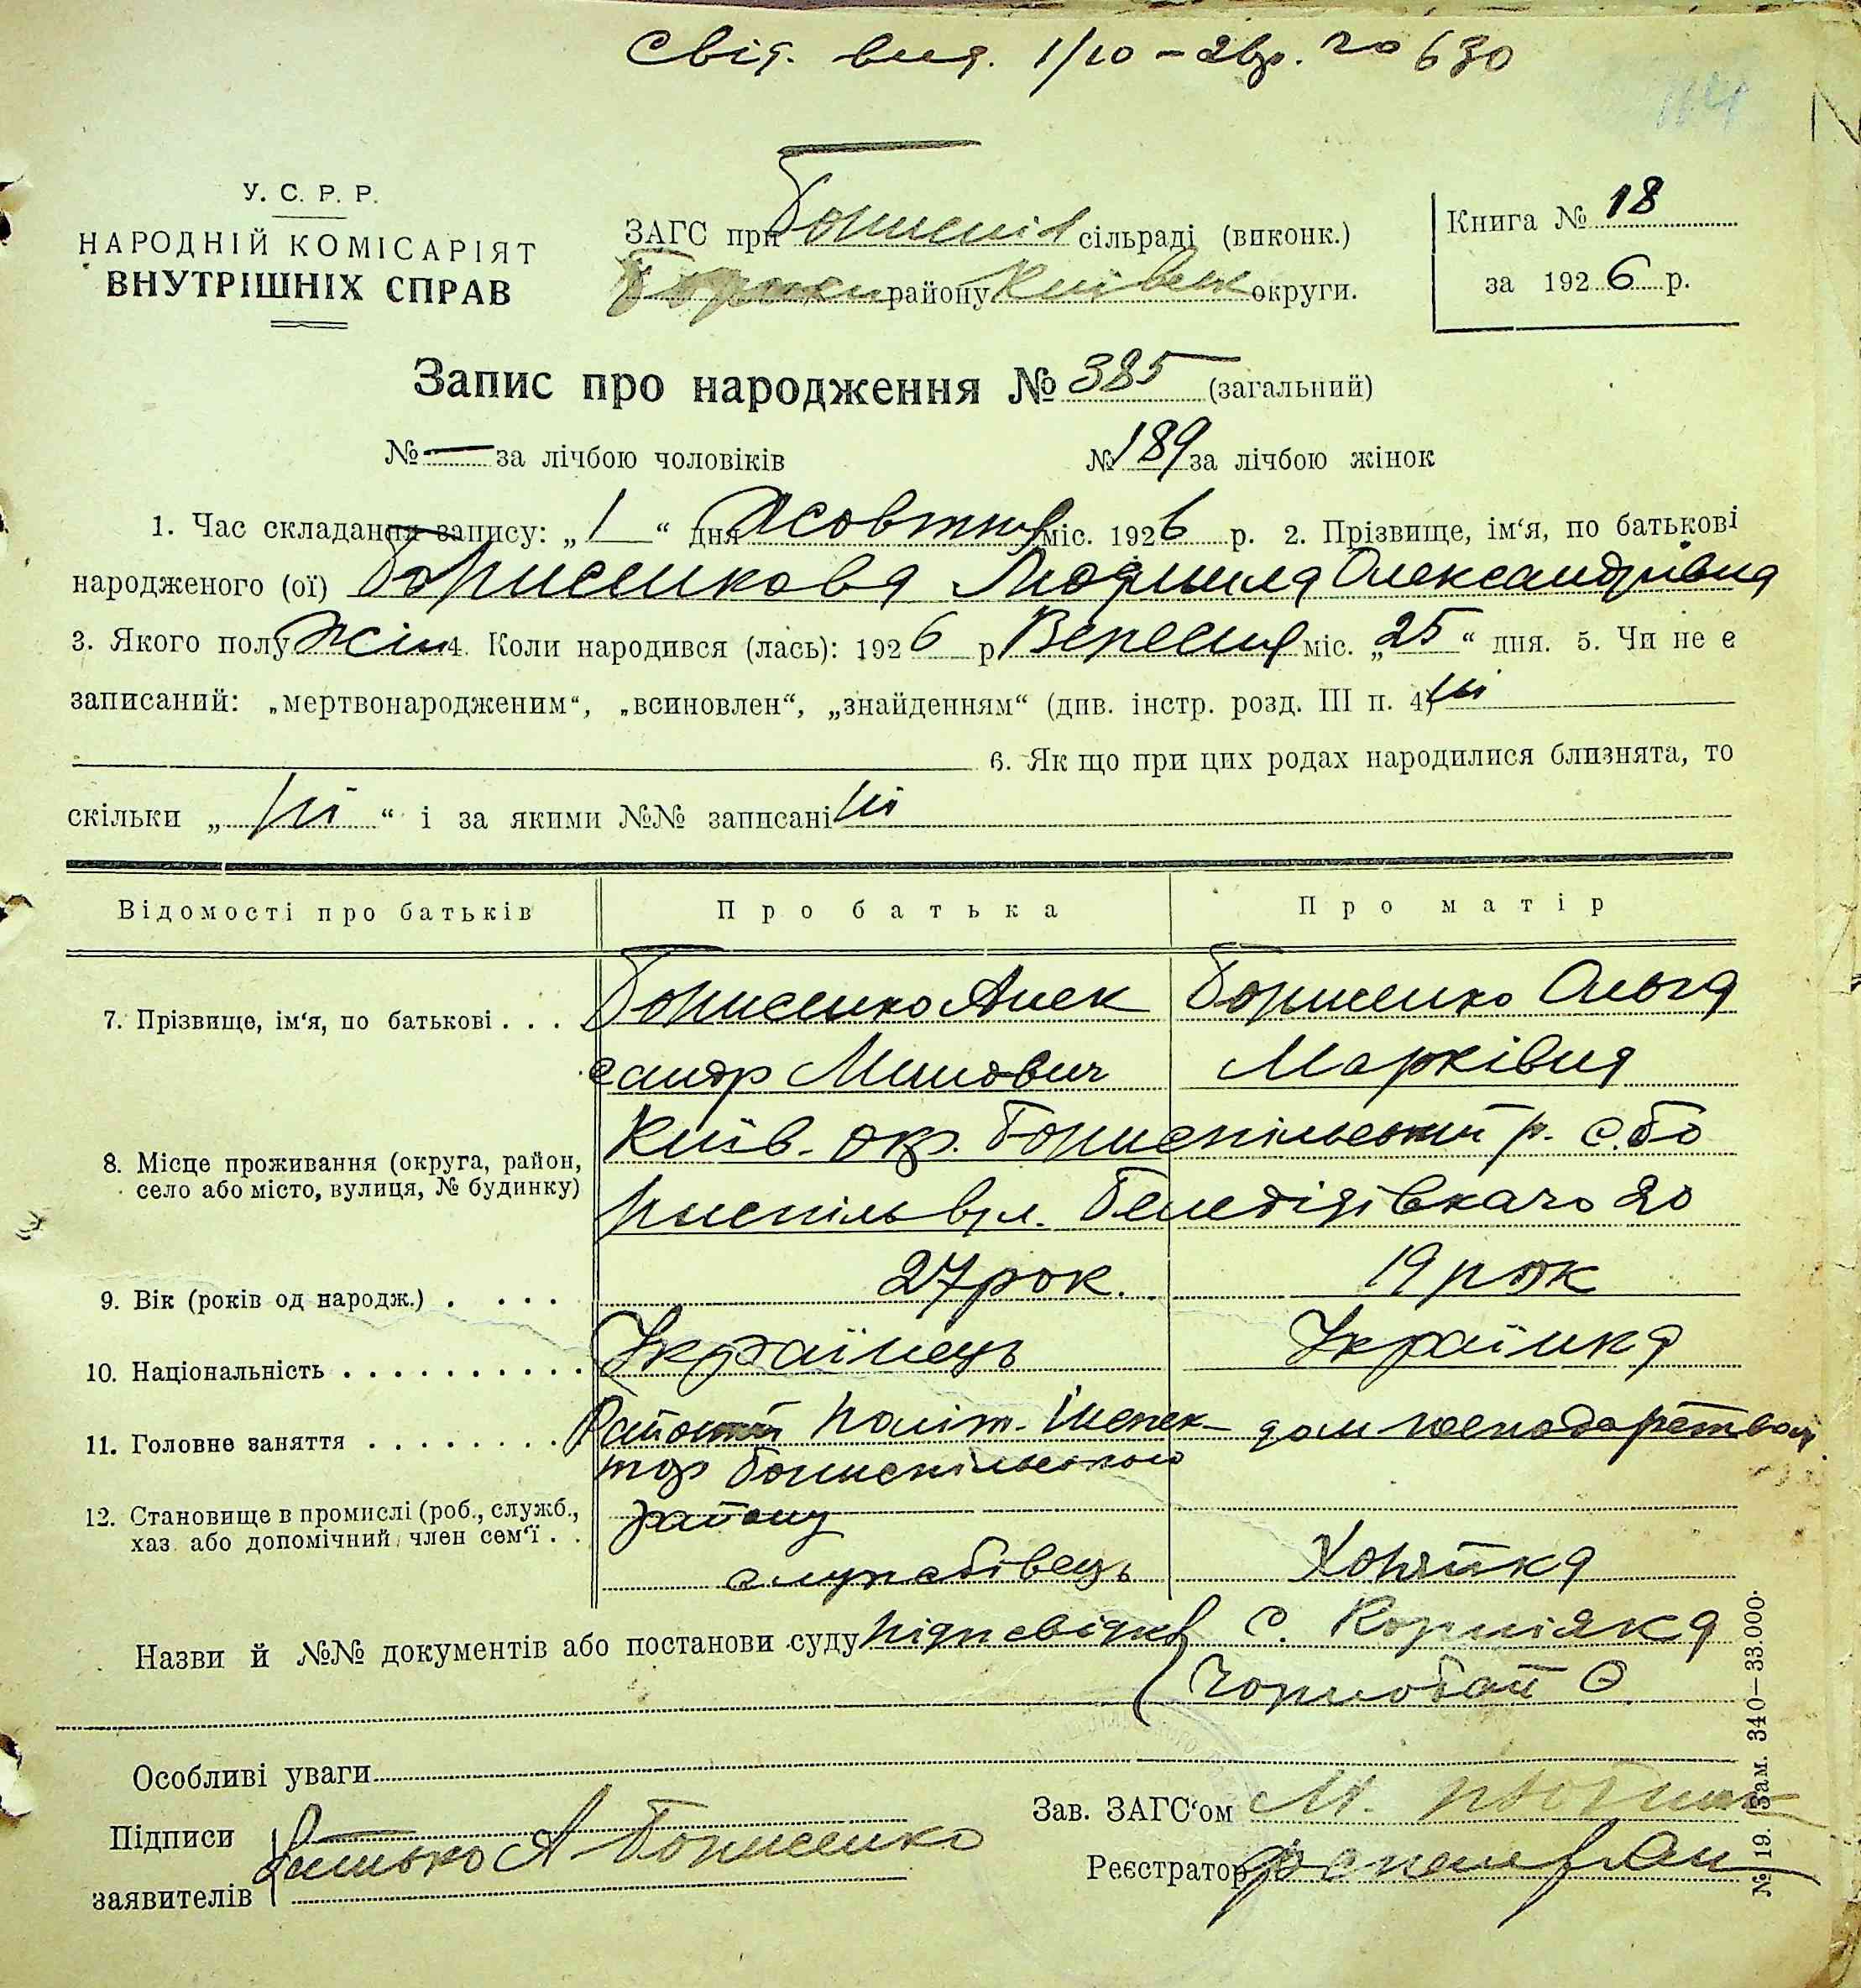 Свід. вид. 1/10 – 26р. No 630
114
У. С. Р. Р.
НАРОДНІЙ КОМІСАРІЯТ
ВНУТРІШНІХ СПРАВ
ЗАГС при Бориспіл сільраді (виконк.)
району Київськ округи.
Книга № 18
за 1926 р.
Запис про народження № 385 (загальний)
№ — за лічбою чоловіків № 189 за лічбою жінок
1. Час складання запису: „1“ дня Жовтня міс. 1926 р. 2. Прізвище, ім‘я, по батькові
народженого (ої) Борисенкова Людмила Олександрівна
3. Якого полу Жін 4. Коли народився (лась): 1926 р Вересня міс. „25“ дня. 5. Чи не є
записаний: „мертвонародженим“, „всиновлен“, „знайденням“ (див. інстр. розд. III п. 4) Ні
6. Як що при цих родах народилися близнята, то
скільки „Ні“ і за якими №№ записані Ні
Відомості про батьків Про батька Про матір
7. Прізвище, ім‘я, по батькові . . . Борисенко Алек Борисенко Ольга
сандр Минович Марківна
8. Місце проживання (округа, район, Київ. окр. Бориспільський р. с. Бо
село або місто, вулиця, № будинку) риспіль вул. 20
9. Вік (років од народж.) . . . . 27 рок. 19 рок
10. Національність . . . . . . . . . . Українець Українка
11. Головне заняття . . . . . . . . Районий політ. Інспек- дом господарством
тор Бориспільського
12. Становище в промислі (роб., служб., району
хаз. або допомічний член сем‘ї . . службівець Хозяйка
Назви й №№ документів або постанови суду підп свідків С. Корніяка
Чорнобай О
Особливі уваги
Підписи Батько А Борисенко
заявителів
Зав. ЗАГС‘ом М.
Реєстратор
№ 19. Зам. 340—33.000.